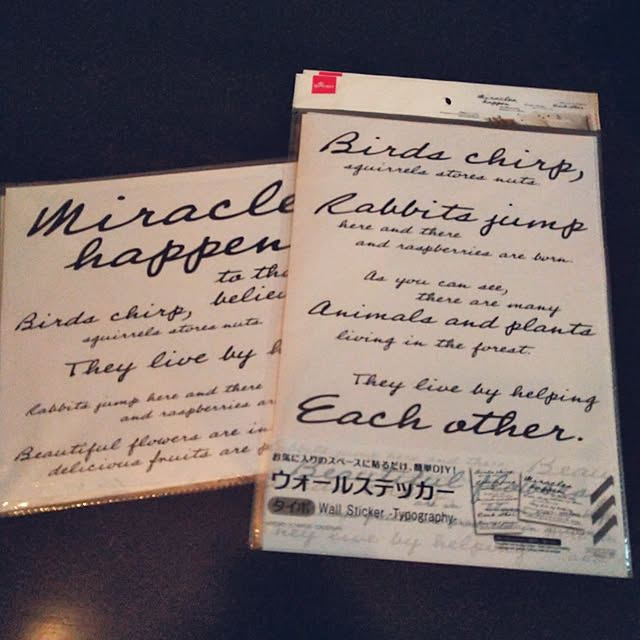 Miracle
happen
to tho
believ
Birds chirp,
squirrels stores nuts
They live by h
Rabbits jump here and there
and raspberries ar
Beautiful flowers are in
delicious fruits are
Miracles
happen
Birds chirp,
squirrels stores nuts
Rabbits jump
here and there
and raspberries are born.
As you can see,
there are many
Animals and plants
living in the forest.
They live by helping
Each other.
お気に入りのスペースに貼るだけ、簡単DIY!
ウォールステッカー
タイポ Wall Sticker -Typography-